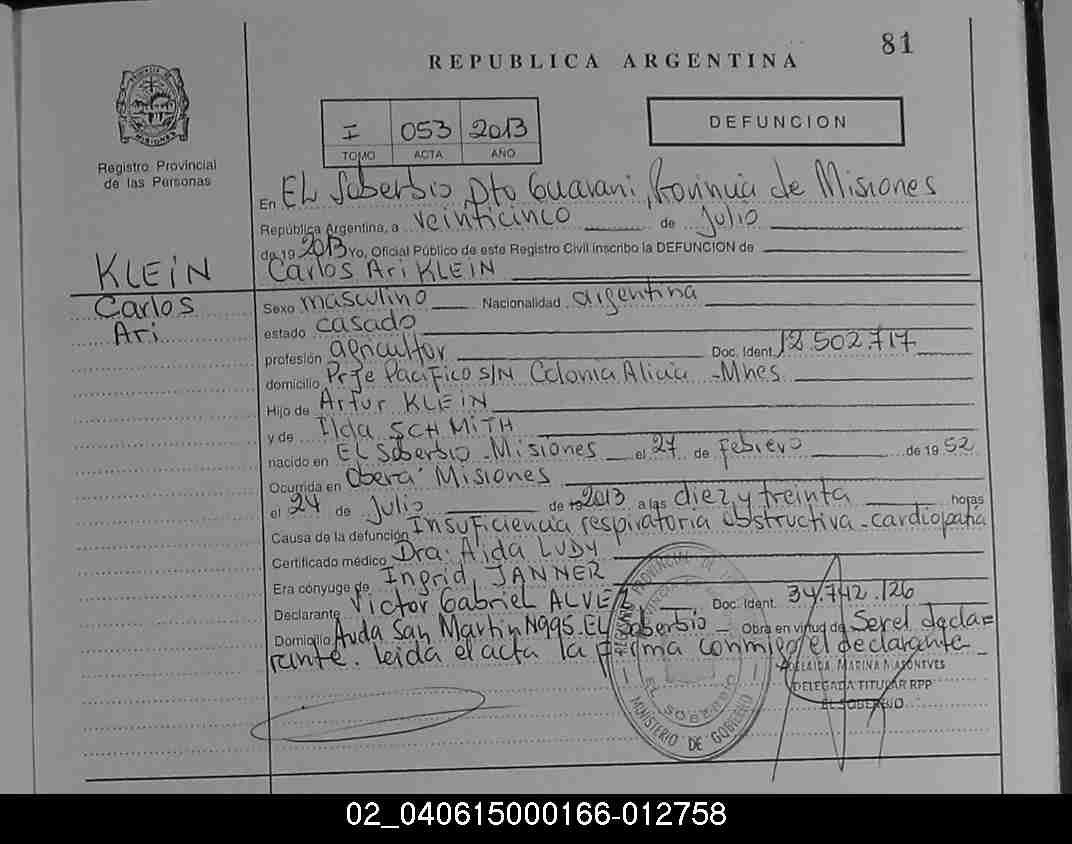 81
REPUBLICA ARGENTINA
I 053 2013
TOMO ACTA AÑO
DEFUNCION
Registro Provincial
de las Personas
En EL Soberbio, Dto Guarani, Provincia de Misiones
República Argentina, a veinticinco de Julio
de 19 2013 Yo, Oficial Público de este Registro Civil inscribo la DEFUNCION de
KLEIN
Carlos Ari KLEIN
Carlos
Ari
Sexo masculino Nacionalidad argentina
estado casado
profesión agricultor Doc. Ident. 12.502.717
domicilio Prje Pacifico S/N Colonia Alicia - Mnes
Hijo de Artur KLEIN
y de Ilda SCHMITH
nacido en EL Soberbio - Misiones el 27 de Febrero de 19 52
Ocurrida en Oberá Misiones
el 24 de Julio de 19 2013 a las diez y treinta horas
Causa de la defunción Insuficiencia respiratoria obstructiva - cardiopatia
Certificado médico Dra. Aida LUDY
Era cónyuge de Ingrid JANNER
Declarante Victor Gabriel ALVEZ Doc. Ident. 34.742.126
Domicilio Avda San Martin N995. EL Soberbio - Obra en virtud de Ser el decla=
rante. leida el acta la firma conmigo el declarante -
MARINA
DELEGADA TITULAR RPP
EL SOBERBIO
PROVINCIA DE
EL SOBERBIO
MINISTERIO DE GOBIERNO
02_040615000166-012758